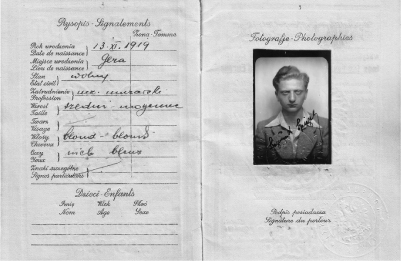 Rysopis - Signalements
Żona - Femme
Rok urodzenia 13. XI. 1919
Date de naissance
Miejsce urodzenia Gera
Lieu de naissance
Stan wolny
Etat civil
Zatrudnienie
Profession
Wzrost średni - moyenne
Taille
Twarz
Visage
Włosy blond - blond
Cheveux
Oczy nieb. bleus
Yeux
Znaki szczególne
Signes particuliers
Dzieci - Enfants
Imię Wiek Płeć
Nom Age Sexe
Fotografje - Photographies
Podpis posiadacza
Signature du porteur